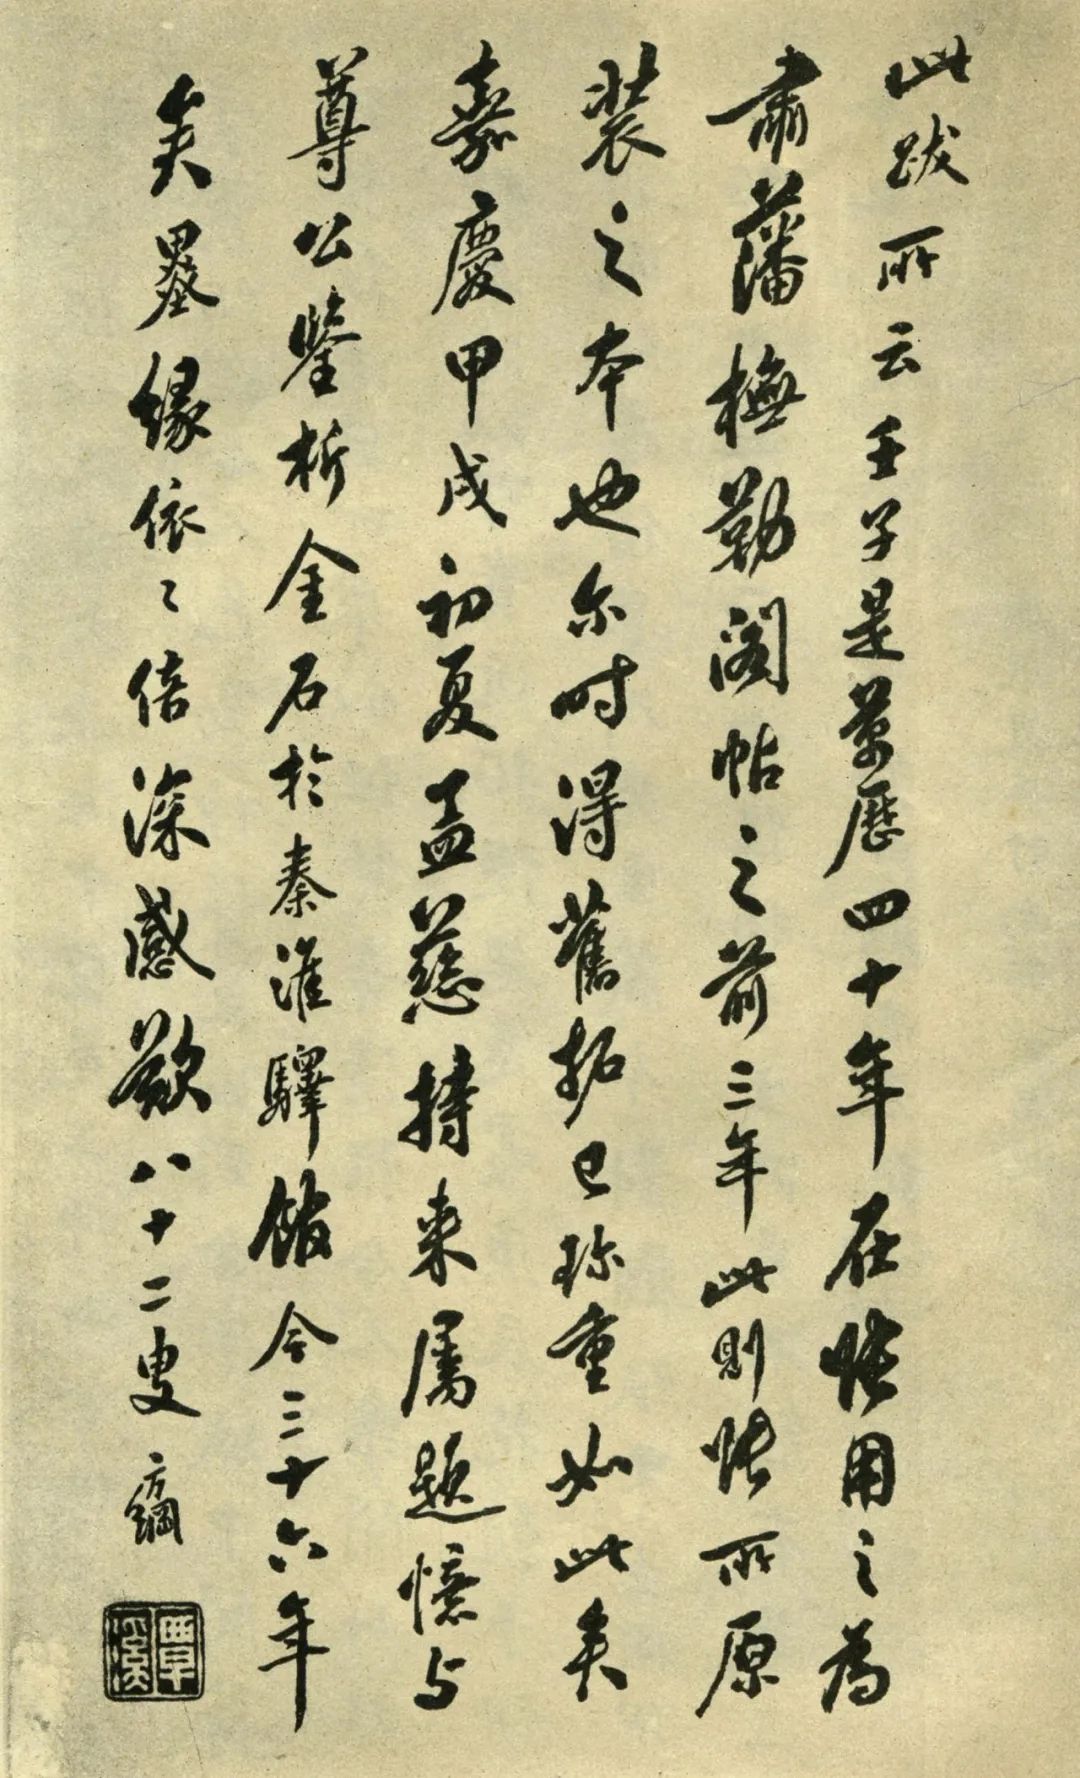 此跋所云壬子是萬曆四十年在怅用之為
肅藩橅勒阁帖之前三年此則怅所原
裝之本也尔时得舊拓已珎重如此矣
嘉慶甲戌初夏孟慈持来属题憶与
尊公鑒析金石於秦淮驛館今三十六年
矣墨緣依〻倍深感歎八十二叟方綱
覃溪